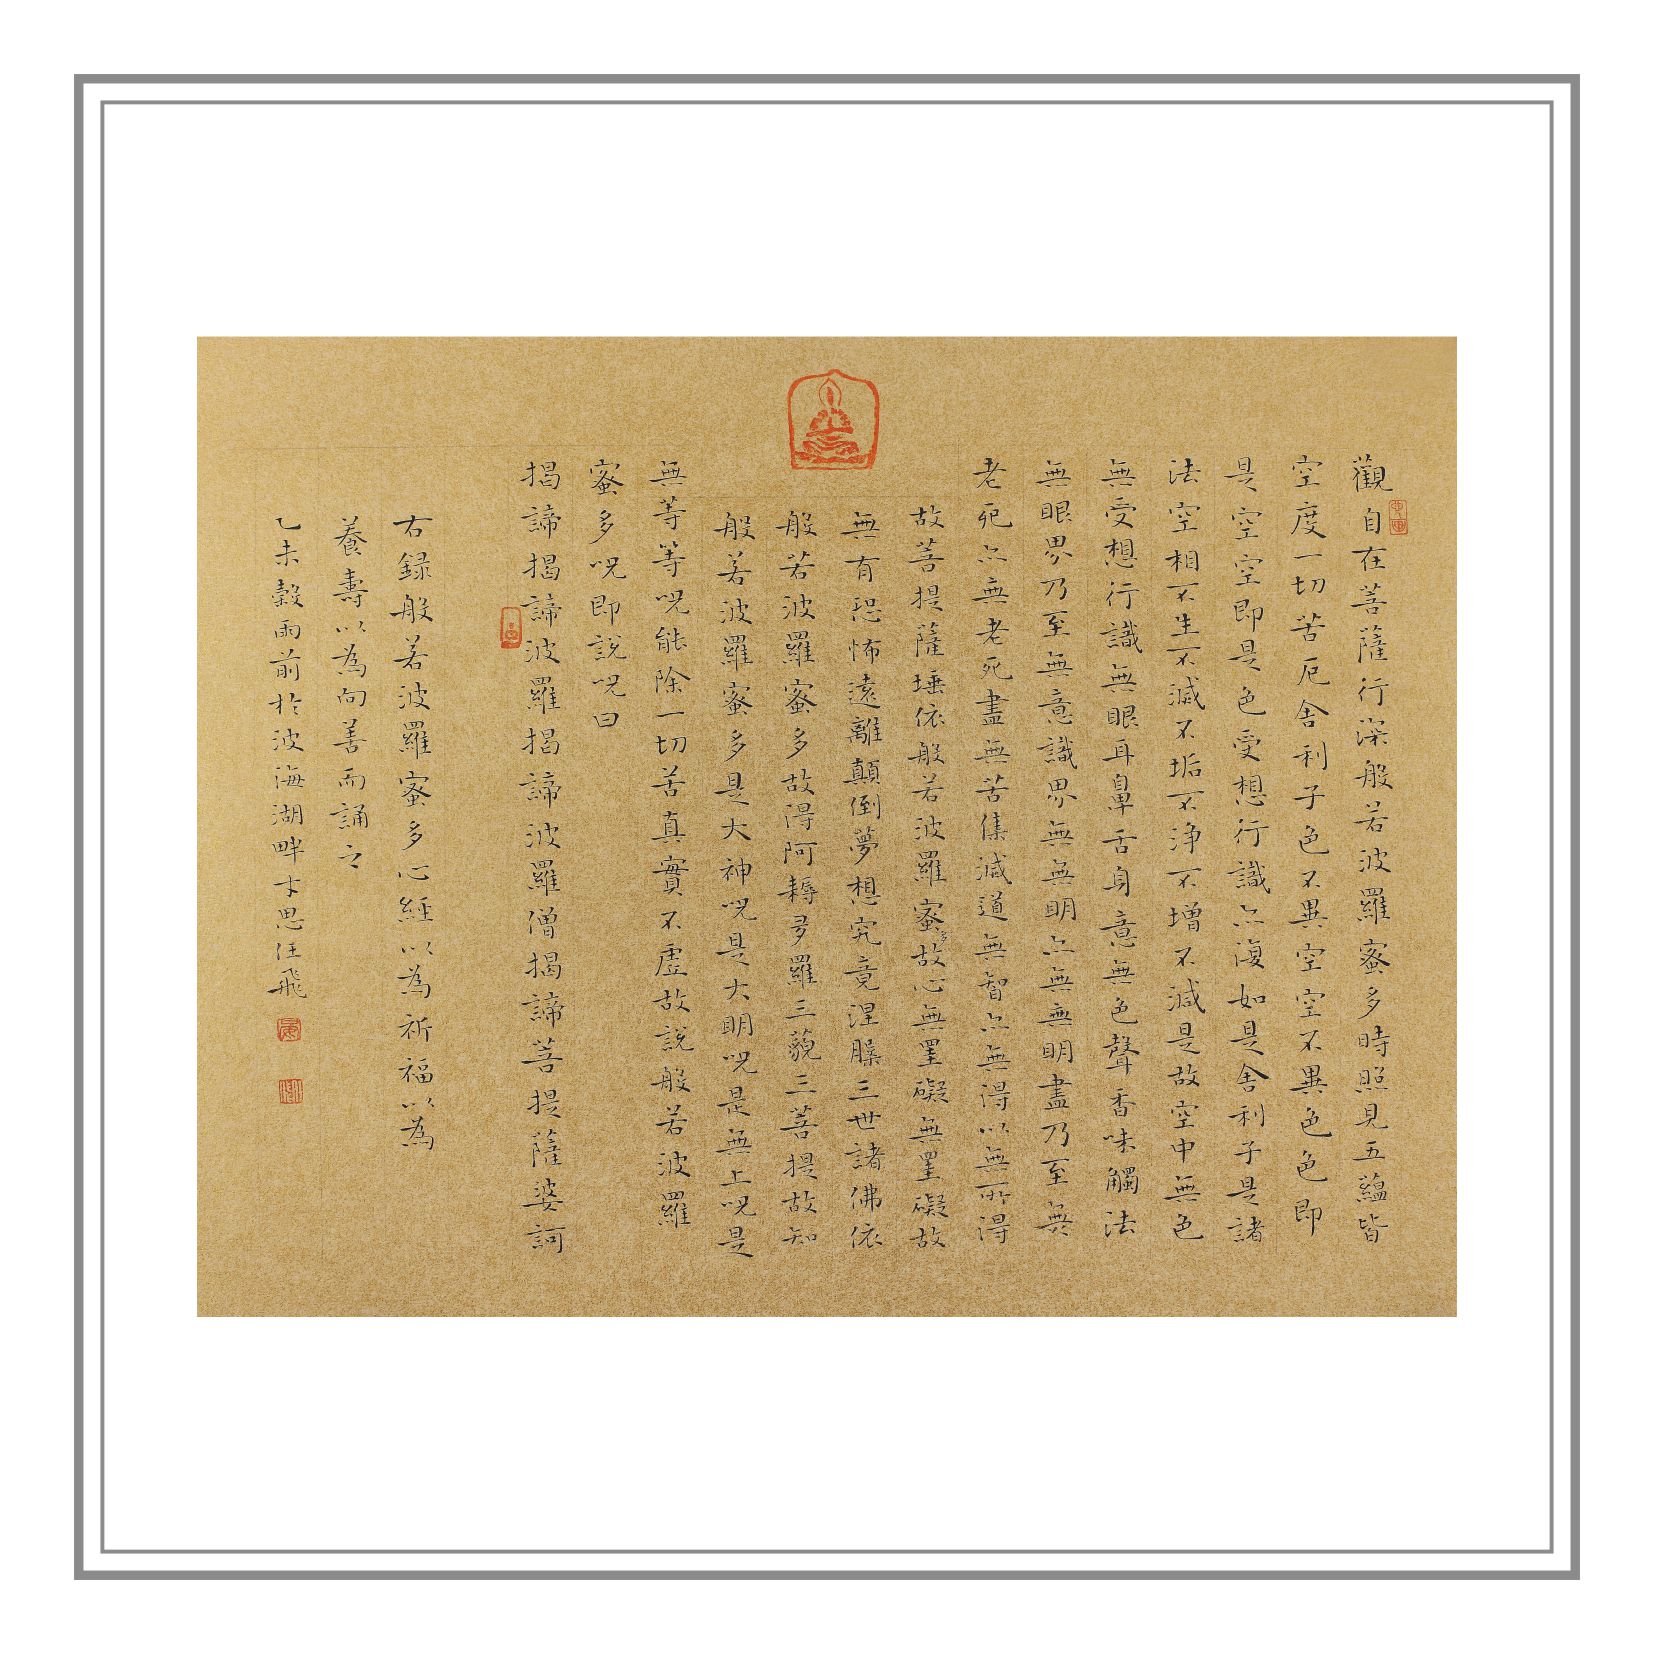 觀自在菩薩行深般若波羅蜜多時照見五蘊皆
空度一切苦厄舍利子色不異空空不異色色即
是空空即是色受想行識亦復如是舍利子是諸
法空相不生不滅不垢不淨不增不減是故空中無色
無受想行識無眼耳鼻舌身意無色聲香味觸法
無眼界乃至無意識界無無明亦無無明盡乃至無
老死亦無老死盡無苦集滅道無智亦無得以無所得
故菩提薩埵依般若波羅蜜多故心無罣礙無罣礙故
無有恐怖遠離顛倒夢想究竟涅槃三世諸佛依
般若波羅蜜多故得阿耨多羅三藐三菩提故知
般若波羅蜜多是大神咒是大明咒是無上咒是
無等等咒能除一切苦真實不虛故說般若波羅
蜜多咒即說咒曰
揭諦揭諦波羅揭諦波羅僧揭諦菩提薩婆訶
右録般若波羅蜜多心經以為祈福以為
養壽以為向善而誦之
乙未穀雨前於波海湖畔思汪飛